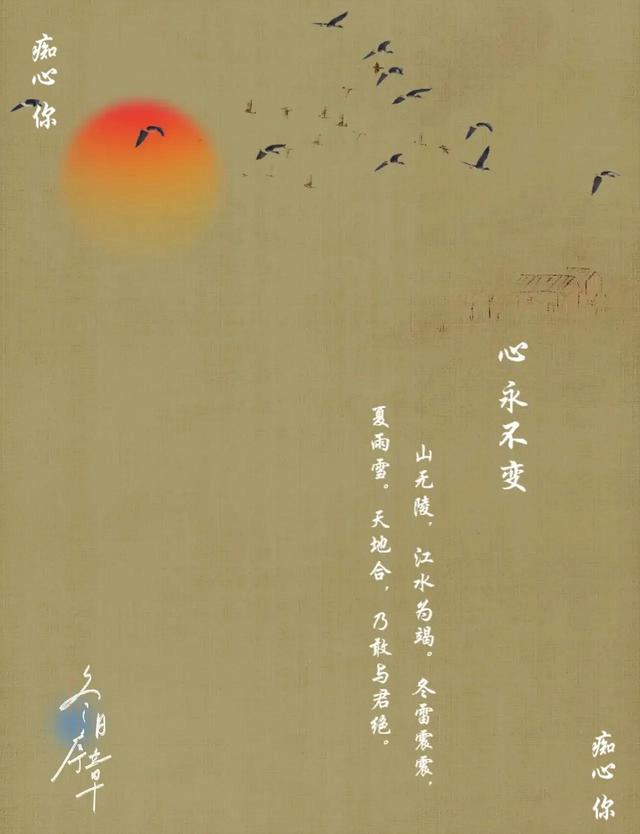 痴心 你
心永不变
山无陵，江水为竭。冬雷震震，
夏雨雪。天地合，乃敢与君绝。
痴心 你